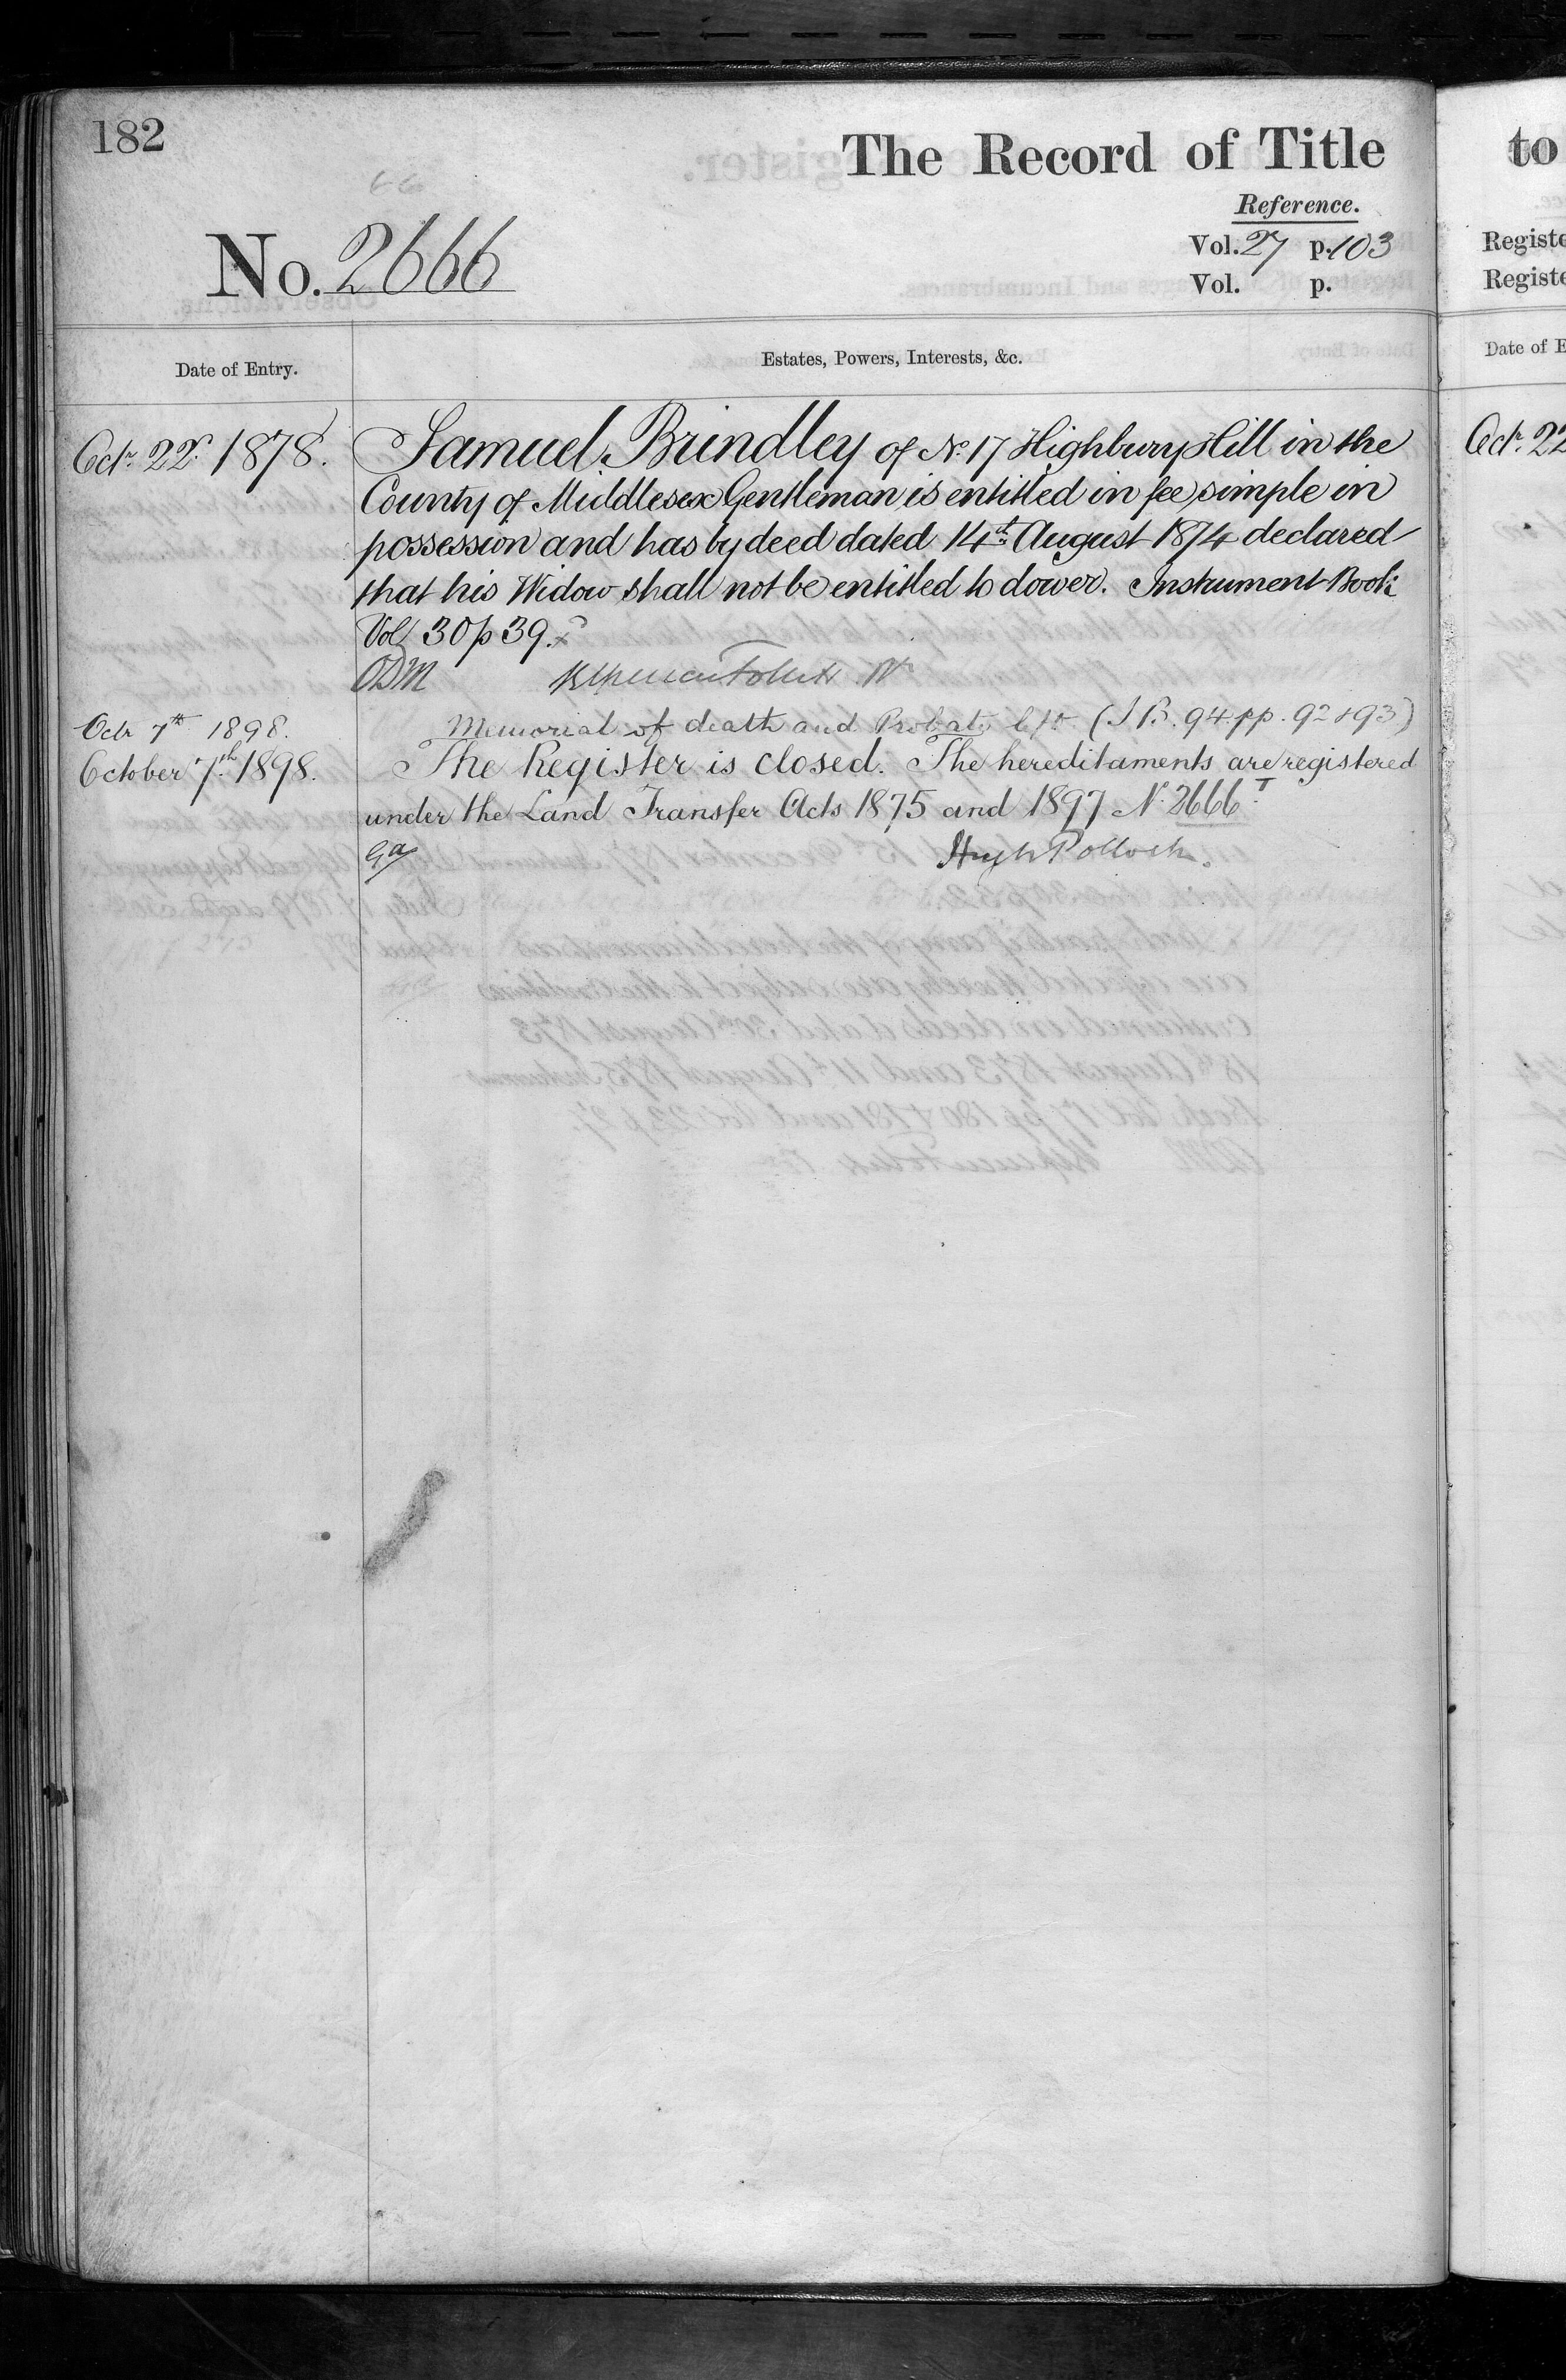 182
The Record of Title
to
Reference.
No. 2666
Vol. 27 p. 103
Vol. p.
Registe
Registe
Date of Entry.
Estates, Powers, Interests, &c.
Date of E
Octr. 22d. 1878.
Samuel Brindley of No. 17 Highbury Hill in the
County of Middlesex Gentleman is entitled in fee simple in
possession and has by deed dated 14th August 1874 declared
that his Widow shall not be entitled to dower. Instrument Book
Vol 30 p 39.
ODM
Octr. 22
Octr 7th 1898.
Memorial of death and Probate (I B. 94. pp. 92 & 93)
October 7th. 1898.
The Register is closed. The hereditaments are registered
under the Land Transfer Acts 1875 and 1897 No. 2666T.
Hugh Pollock.